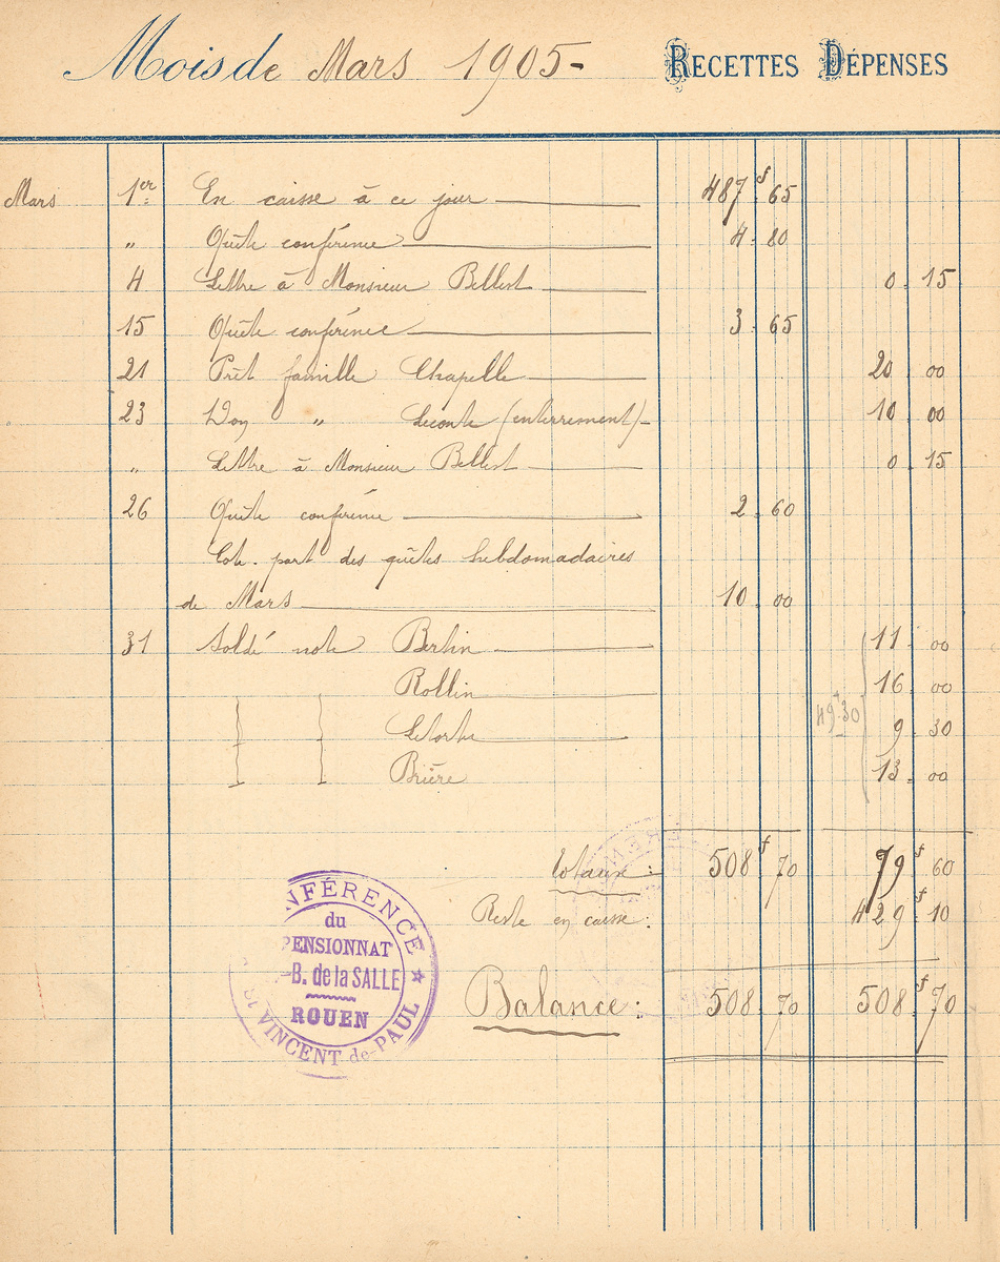 Mois de Mars 1905- RECETTES DÉPENSES
Mars 1er En caisse à ce jour 487f 65
" Quête conférence 4. 80
4 Lettre à Monsieur Bellest 0. 15
15 Quête conférence 3. 65
21 Prêt famille Chapelle 20 00
23 Don " Leconte (enterrement) 10. 00
" Lettre à Monsieur Bellest 0. 15
26 Quête conférence 2. 60
Cote-part des quêtes hebdomadaires
de Mars 10. 00
31 Soldé note Bertin 11. 00
Rollin 16. 00
49f.30
9. 30
Brière 13. 00
Totaux: 508f 70 79f 60
Reste en caisse: 429f 10
Balance: 508. 70 508f 70
NFÉRENCE
du
PENSIONNAT
-B. de la SALLE
ROUEN
St VINCENT de PAUL